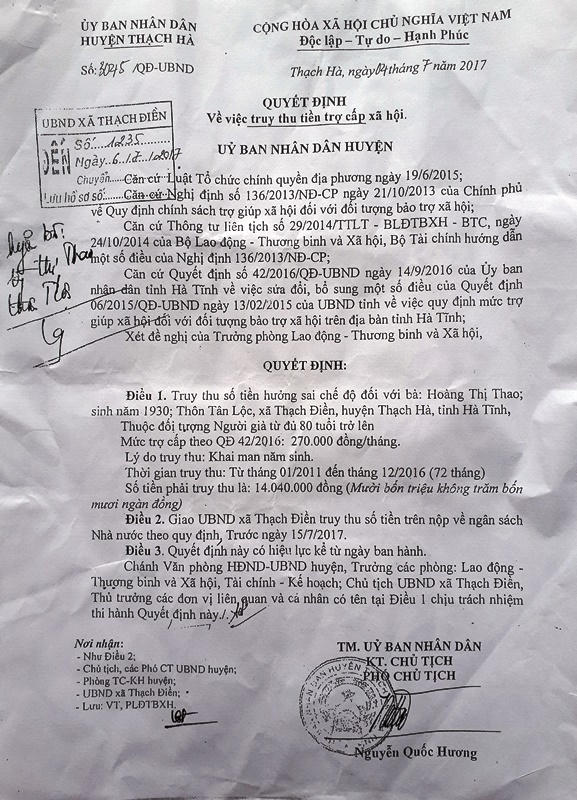 ỦY BAN NHÂN DÂN
HUYỆN THẠCH HÀ
Số: 3045 /QĐ-UBND
CỘNG HÒA XÃ HỘI CHỦ NGHĨA VIỆT NAM
Độc lập – Tự do – Hạnh Phúc
Thạch Hà, ngày 04 tháng 7 năm 2017
UBND XÃ THẠCH ĐIỀN
ĐẾN
Số: 1235
Ngày 6/7/2017
Chuyển
Lưu hồ sơ số:
QUYẾT ĐỊNH
Về việc truy thu tiền trợ cấp xã hội.
UỶ BAN NHÂN DÂN HUYỆN
Căn cứ Luật Tổ chức chính quyền địa phương ngày 19/6/2015;
Căn cứ Nghị định số 136/2013/NĐ-CP ngày 21/10/2013 của Chính phủ
về Quy định chính sách trợ giúp xã hội đối với đối tượng bảo trợ xã hội;
Căn cứ Thông tư liên tịch số 29/2014/TTLT - BLĐTBXH - BTC, ngày
24/10/2014 của Bộ Lao động - Thương binh và Xã hội, Bộ Tài chính hướng dẫn
một số điều của Nghị định 136/2013/NĐ-CP;
Căn cứ Quyết định số 42/2016/QĐ-UBND ngày 14/9/2016 của Ủy ban
nhân dân tỉnh Hà Tĩnh về việc sửa đổi, bổ sung một số điều của Quyết định
06/2015/QĐ-UBND ngày 13/02/2015 của UBND tỉnh về việc quy định mức trợ
giúp xã hội đối với đối tượng bảo trợ xã hội trên địa bàn tỉnh Hà Tĩnh;
Xét đề nghị của Trưởng phòng Lao động - Thương binh và Xã hội,
QUYẾT ĐỊNH:
Điều 1. Truy thu số tiền hưởng sai chế độ đối với bà: Hoàng Thị Thao;
sinh năm 1930; Thôn Tân Lộc, xã Thạch Điền, huyện Thạch Hà, tỉnh Hà Tĩnh,
Thuộc đối tượng Người già từ đủ 80 tuổi trở lên
Mức trợ cấp theo QĐ 42/2016: 270.000 đồng/tháng.
Lý do truy thu: Khai man năm sinh.
Thời gian truy thu: Từ tháng 01/2011 đến tháng 12/2016 (72 tháng)
Số tiền phải truy thu là: 14.040.000 đồng (Mười bốn triệu không trăm bốn
mươi ngàn đồng)
Điều 2. Giao UBND xã Thạch Điền truy thu số tiền trên nộp về ngân sách
Nhà nước theo quy định, Trước ngày 15/7/2017.
Điều 3. Quyết định này có hiệu lực kể từ ngày ban hành.
Chánh Văn phòng HĐND-UBND huyện, Trưởng các phòng: Lao động -
Thương binh và Xã hội, Tài chính - Kế hoạch; Chủ tịch UBND xã Thạch Điền,
Thủ trưởng các đơn vị liên quan và cá nhân có tên tại Điều 1 chịu trách nhiệm
thi hành Quyết định này./.
Nơi nhận:
- Như Điều 2;
- Chủ tịch, các Phó CT UBND huyện;
- Phòng TC-KH huyện;
- UBND xã Thạch Điền;
- Lưu: VT, PLĐTBXH.
TM. UỶ BAN NHÂN DÂN
KT. CHỦ TỊCH
PHÓ CHỦ TỊCH
Nguyễn Quốc Hương